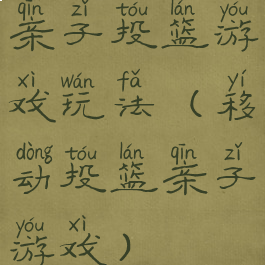 qīn zǐ tóu lán yóu
亲子投篮游
xì wán fǎ yí
戏玩法（移
dòng tóu lán qīn zǐ
动投篮亲子
yóu xì
游戏）